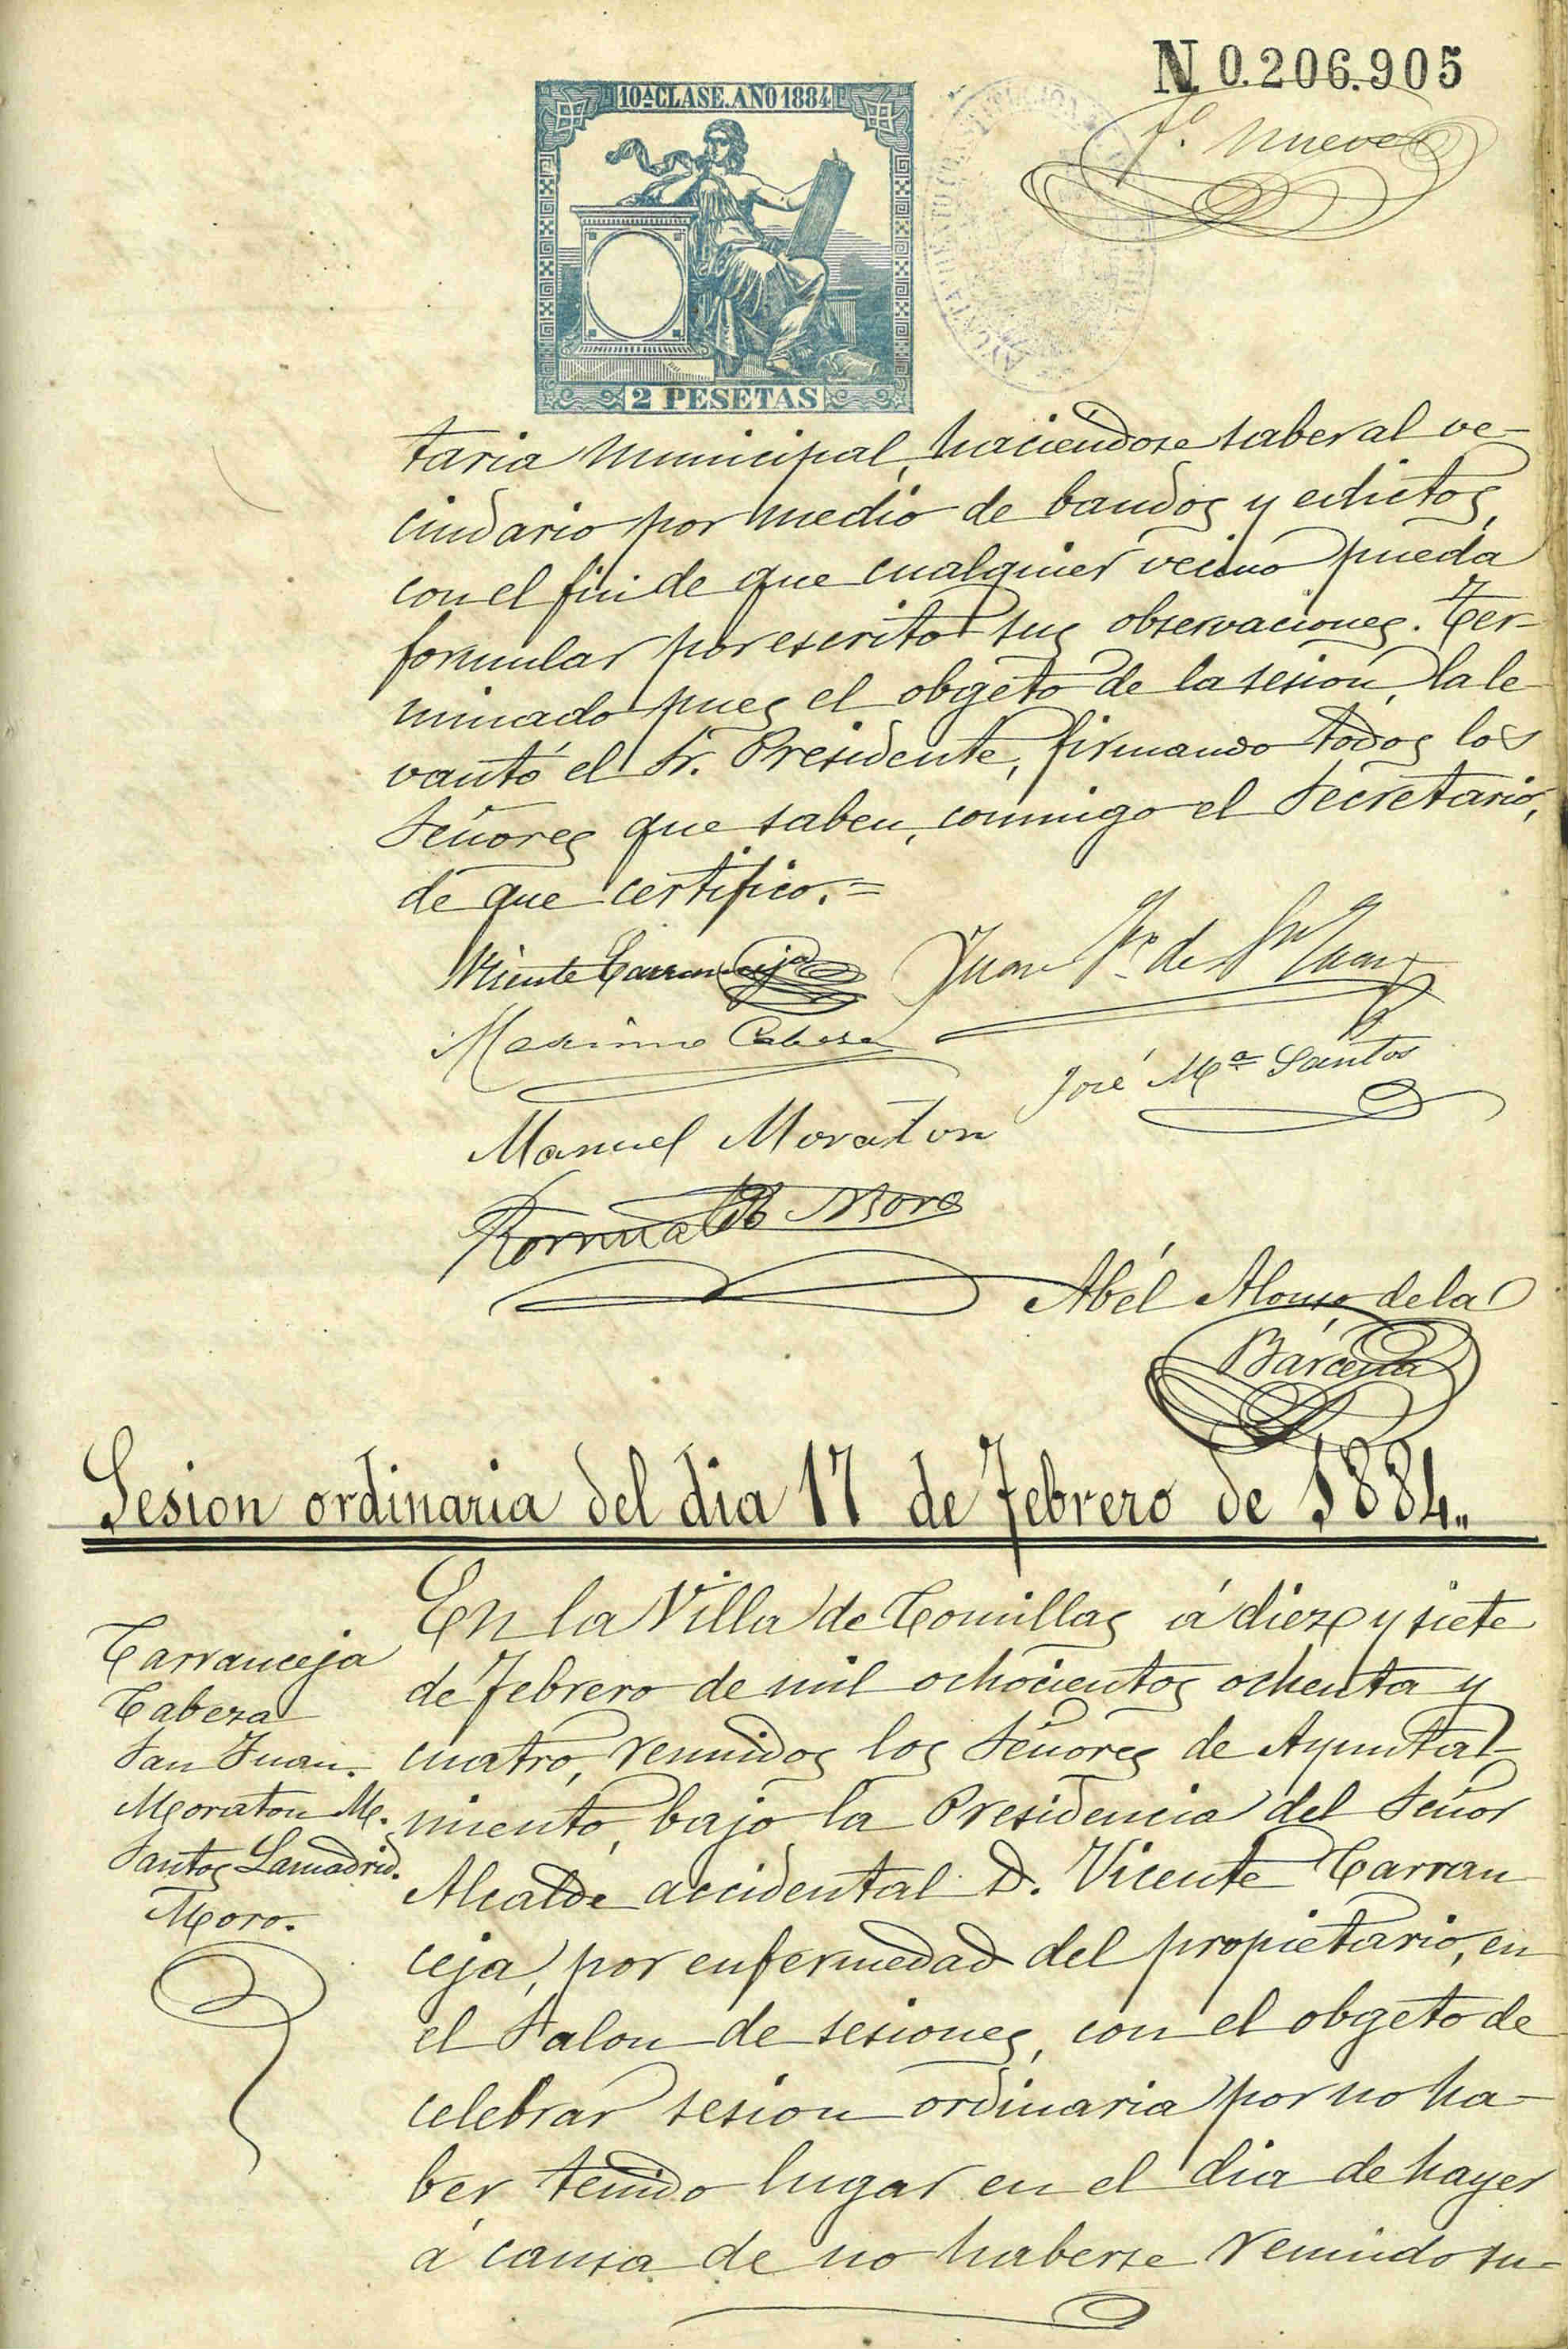 N 0.206.905
10ª CLASE. AÑO 1884
fº. nueve
2 PESETAS
taria municipal, haciéndose saber al ve-
cindario por medio de bandos y edictos,
con el fin de que cualquier vecino pueda
formular por escrito sus observaciones. Ter-
minado pues el obgeto de la sesion, la le
vantó el Sr. Presidente, firmando todos los
Señores que saben, conmigo el Secretario,
de que certifico.=
Vicente Carranceja
Juan Fº. de Sn Juan
Maximo Cabeza
José Mª Santos
Manuel Moraton
Romualdo Moro
Abél Alonso de la
Bárcena
Sesion ordinaria del dia 17 de Febrero de 1884.
Carranceja
Cabeza
San Juan.
Moraton M.
Santos Lamadrid.
Moro.
En la Villa de Comillas á diez y siete
de Febrero de mil ochocientos ochenta y
cuatro, reunidos los Señores de Ayunta-
miento, bajo la Presidencia del Señor
Alcalde accidental D. Vicente Carran
ceja, por enfermedad del propietario, en
el Salon de sesiones, con el obgeto de
celebrar sesion ordinaria por no ha-
ber tenido lugar en el dia de hayer
á causa de no haberse reunido su-